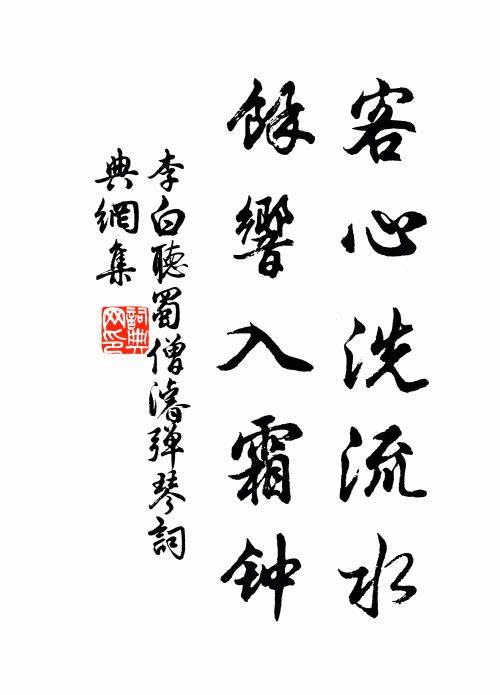 客心洗流水
餘響入霜钟
李白聽蜀僧濬弹琴詞
典網集
詞典网印